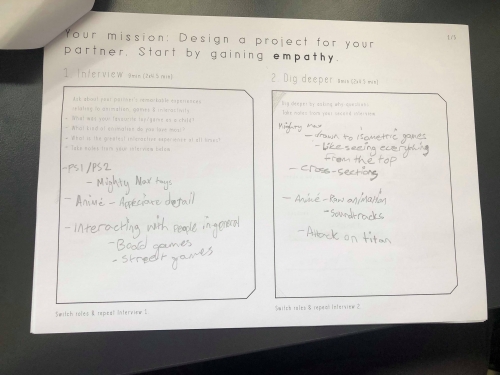 Your mission: Design a project for your
partner. Start by gaining empathy.
1/3
1. Interview 6min (2x4.5 min)
Ask about your partner's remarkable experiences
relating to animation, games & interactivity.
- What was your favourite
- What kind of animation do you love most?
- What is the greatest interactive experience of all times?
- Take notes from your interview below.
-PS1/PS2
- Mighty Max toys
- Animé - Appreciate detail
- Interacting with people in general
- Board games
- Street games
Switch roles & repeat Interview 1.
2. Dig deeper
Dig deeper by asking why questions.
Take notes from your second interview.
Mighty Max
- drawn to isometric games
- Like seeing everything
from the top
- Cross-sections
- Animé - Raw animation
- Soundtracks
- Attack on titan
Switch roles & repeat Interview 2.